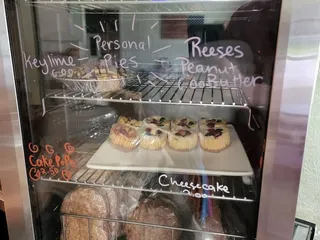 Personal
Pies
Keylime
6.00
Reeses
Peanut
Butter
Cake Pops
Cheesecake